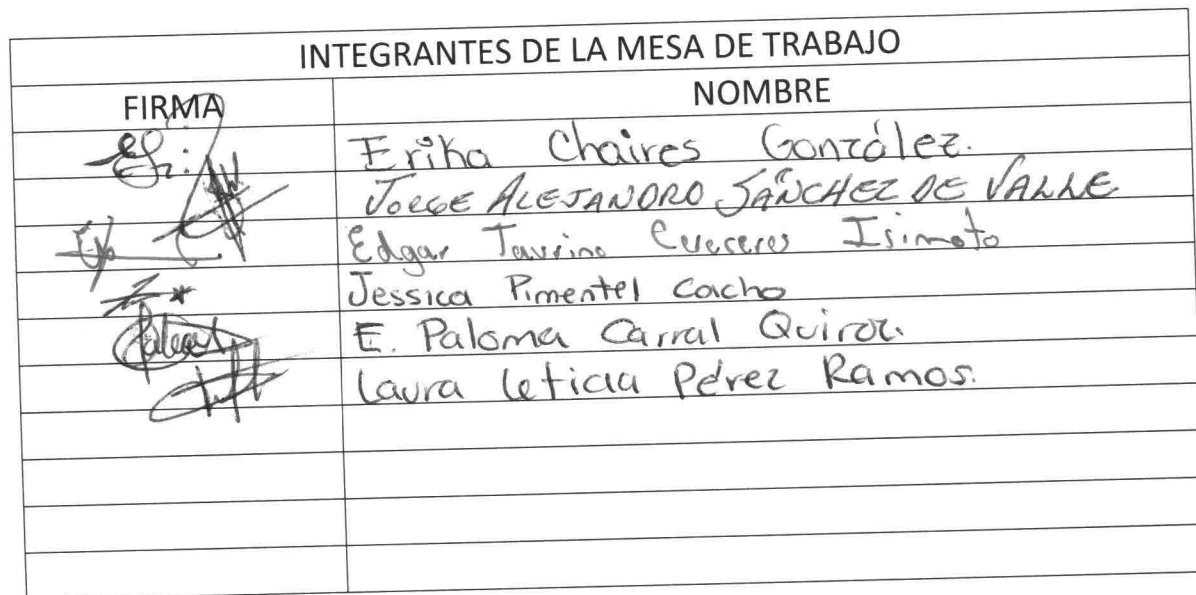 INTEGRANTES DE LA MESA DE TRABAJO
FIRMA NOMBRE
Erika Chaires González.
JORGE ALEJANDRO SÁNCHEZ DE VALLE
Edgar Taurino Isimoto
Jessica Pimentel Cacho
E. Paloma Carral Quiroz.
Laura Leticia Pérez Ramos.